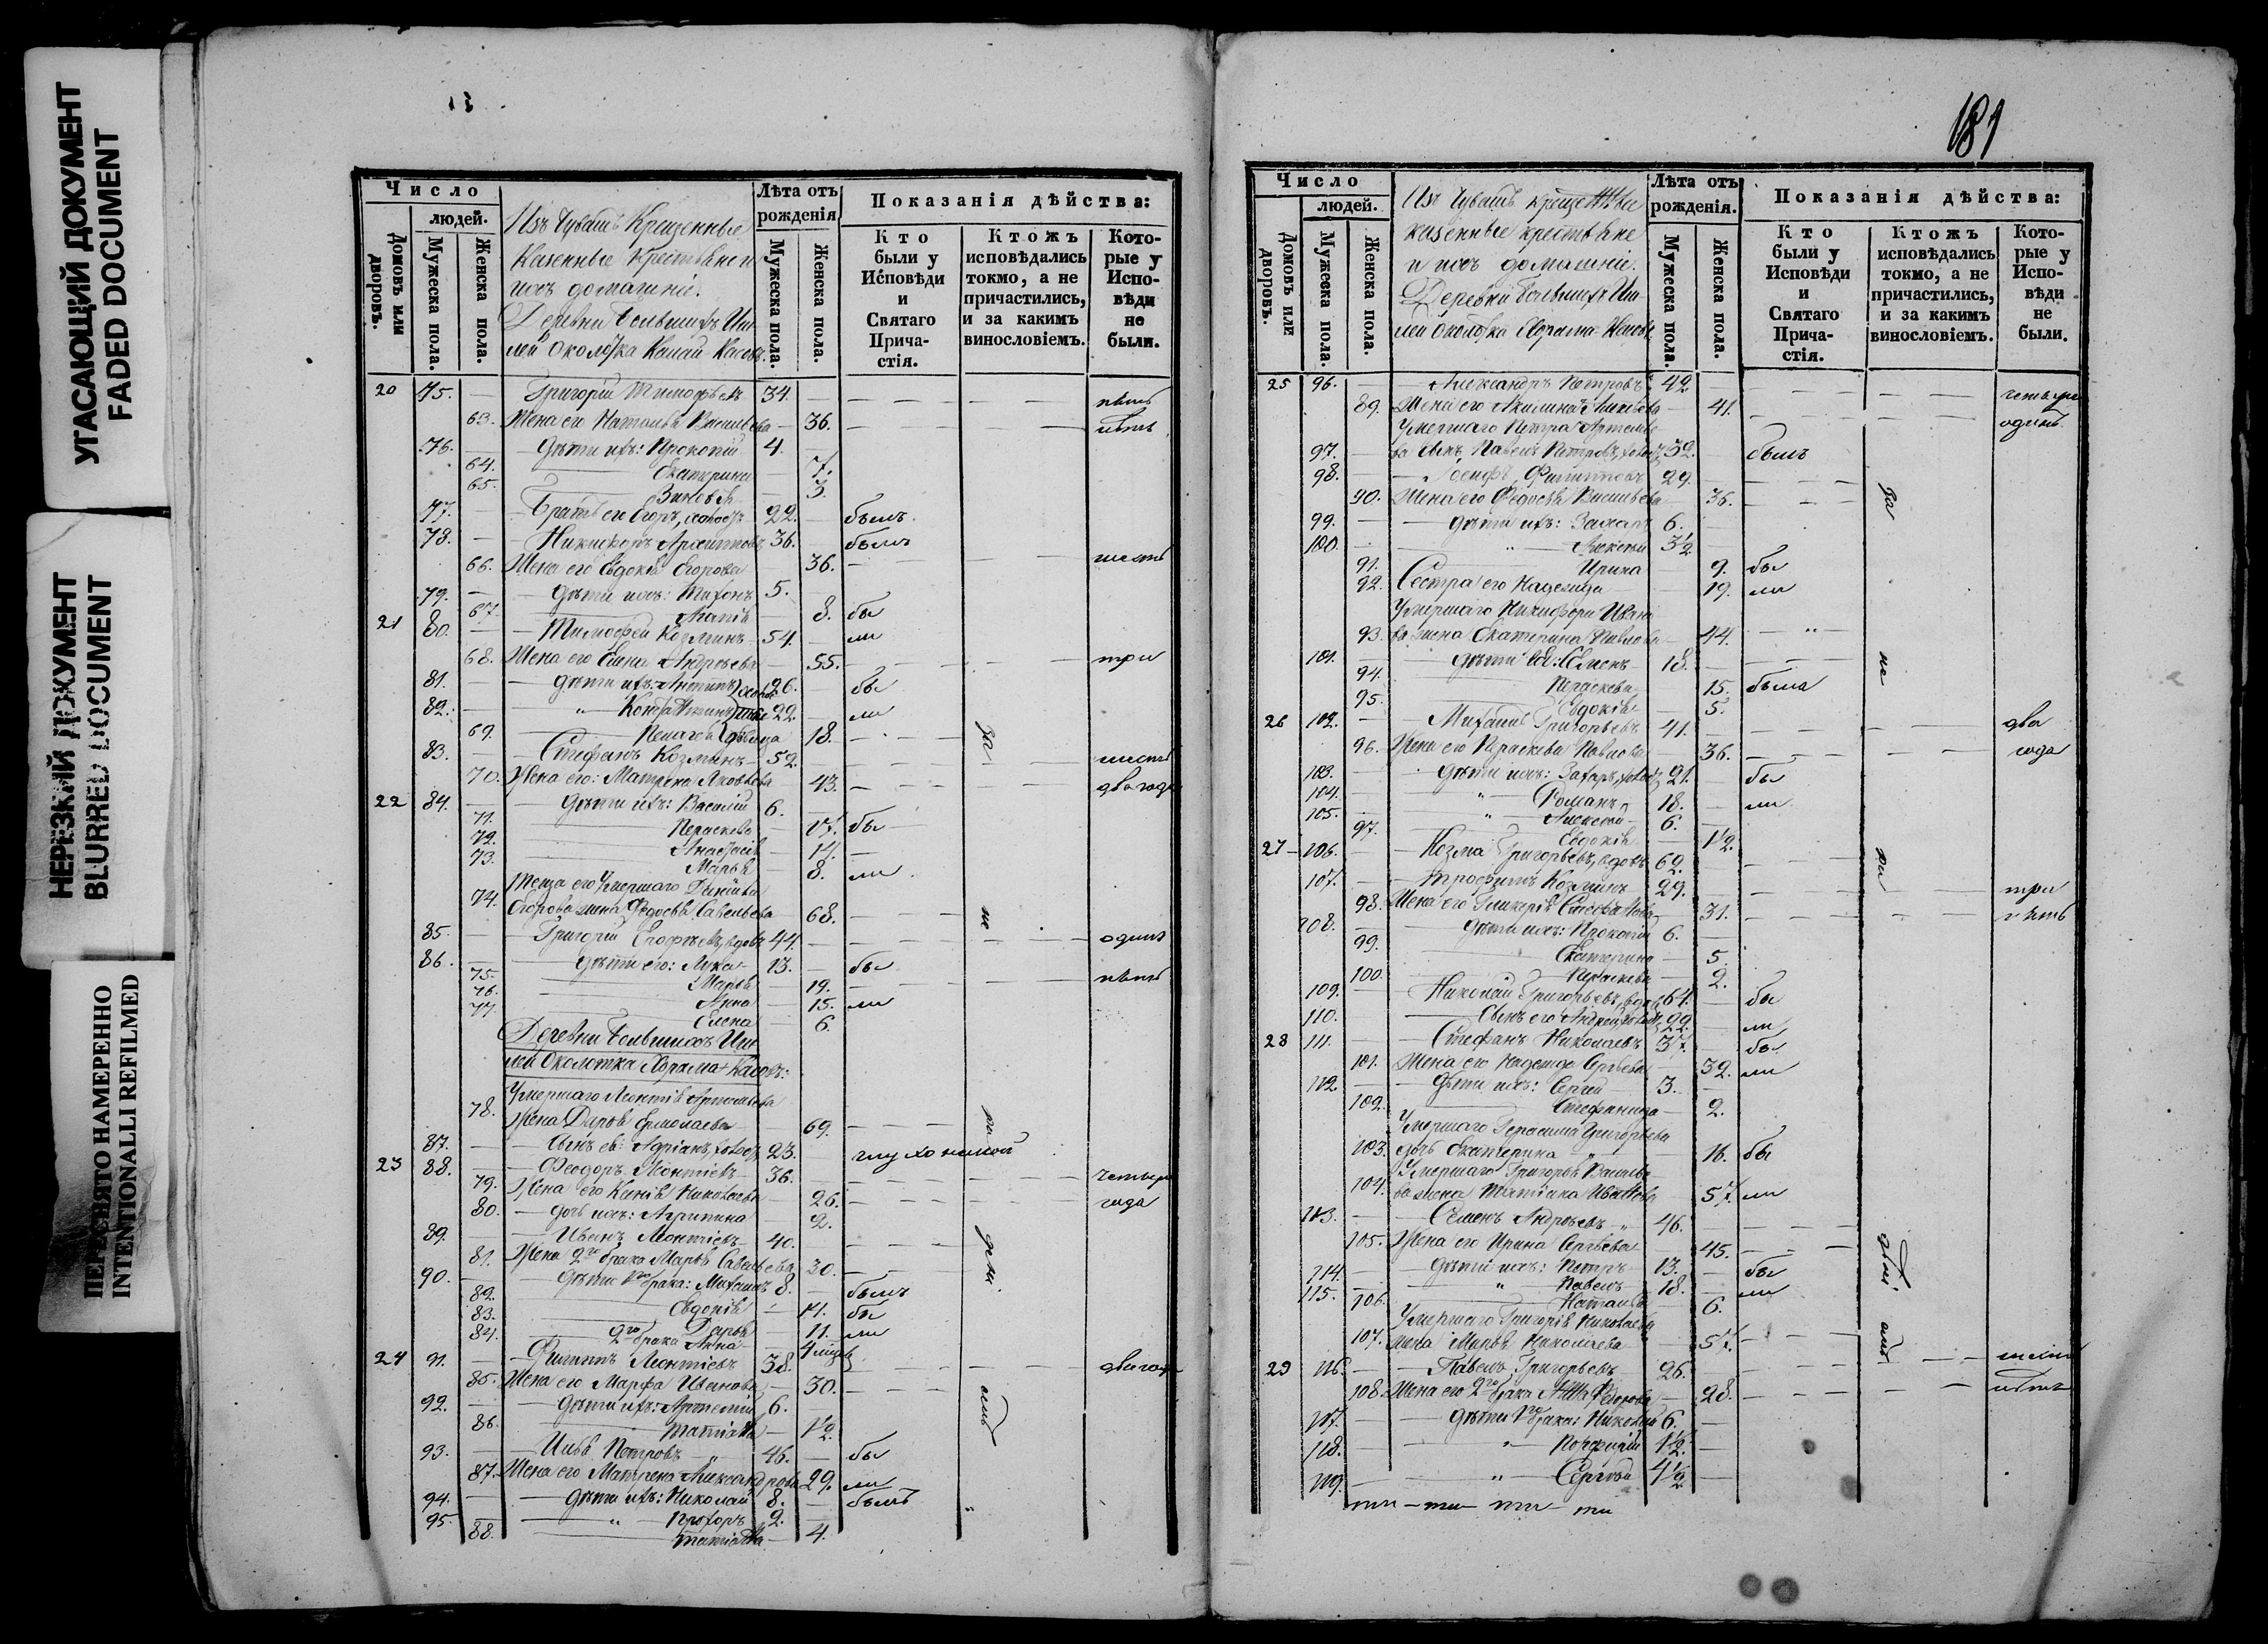 УГАСАЮЩИЙ ДОКУМЕНТ
FADED DOCUMENT
НЕРЕЗКИЙ ДОКУМЕНТ
BLURRED DOCUMENT
ПЕРЕСНЯТО НАМЕРЕННО
INTENTIONALLY REFILMED
13
Число
людей.
Домовъ или дворовъ.
Мужеска пола.
Женска пола.
Изъ Чувашъ Крещенные
Казенные Крестьяне и
ихъ домашніе.
Деревни Большихъ Иш-
лей Околотка
Лѣта отъ рожденія
Мужеска пола.
Женска пола.
Показанія дѣйства:
Кто были у Исповѣди и Святаго Прича-стія.
Ктожъ исповѣдались токмо, а не причастились, и за какимъ винословіемъ.
Кото-рые у Испо-вѣди не были.
20 75. Григорій Тимофѣевъ 34. пять
63. Жена его Наталья Васильева 36. лѣтъ
76. Дѣти ихъ: Прокопій 4.
64. Екатерина 7.
65. 3.
77. Братъ его Егоръ, холостъ 22. былъ
78. Никифоръ Архиповъ 36. былъ
66. Жена его Евдокія Егорова 36. шесть
79. Дѣти ихъ: 5.
67. 8. бы
21 80. Тимофей Козминъ 54. ли
68. Жена его Елена Андреева 55. три
81. Дѣти ихъ: 26. бы
82. 22. ли
69. Пелагея дѣвица 18.
83. Стефанъ Козминъ 52. шесть
70. Жена его: Матрена Яковлева 43. два года
22 84. Дѣти ихъ: Василій 6.
71. Параскева 17. бы
72. Анастасія 14.
73. Марья 8. ли
Теща его умершаго
74. Егорова жена Федосья Савельева 68.
85. Григорій вдовъ 44. одинъ
86. Дѣти его: Лука 13. бы
75. Марья 19. пять
76. Анна 15. ли
77. Елена 6.
Деревни Большихъ Иш-
лей Околотка
Умершаго Леонтія
78. Жена Дарья Ермолаева 69.
87. Сынъ ея: Адріанъ, холостъ 23. глухонѣмой
23 88. Феодоръ Леонтіевъ 36. четыре
79. Жена его Ксенія Николаева 26. года
80. дочь ихъ: Агрипина 2.
89. Иванъ Леонтіевъ 40.
81. Жена 2го брака Марья Савельева 30.
90. Дѣти 1го брака: Михаилъ 8. былъ
82. Евдокія 14. бы
83. Дарья 11. ли
84. 2го брака Анна 4 мѣсяц
24 91. Филиппъ Леонтіевъ 38. два года
85. Жена его Марфа Иванова 30.
92. Дѣти ихъ: Артемій 6.
86. Татіана 1½.
93. Илья Петровъ 46. бы
87. Жена его Матрена Александрова 29. ли
94. Дѣти ихъ: Николай 8. былъ
95. Прохоръ 2.
88. Татіана 4.
за не
181
Число
людей.
Домовъ или дворовъ.
Мужеска пола.
Женска пола.
Изъ Чувашъ крещенные
казенные крестьяне
и ихъ домашніе.
Деревни Большихъ Иш-
лей Околотка
Лѣта отъ рожденія.
Мужеска пола.
Женска пола.
Показанія дѣйства:
Кто были у Исповѣди и Святаго Прича-стія.
Ктожъ исповѣдались токмо, а не причастились, и за какимъ винословіемъ.
Кото-рые у Испо-вѣди не были.
25 96. Александръ Петровъ 42. четыре
89. Жена его Акилина 41. одинъ
Умершаго Петра Артемье-
97. ва сынъ Павелъ Петровъ, холостъ 32. былъ
98. Іосифъ Филипповъ 29.
90. Жена его Федосья Васильева 36.
99. Дѣти ихъ: Захаръ 6.
100. Алексѣй 3½
91. Ирина 9. бы
92. Сестра его Надежда 19. ли
Умершаго Никифора Ивано-
93. ва жена Екатерина Павлова 44.
101. Дѣти ея: Семенъ 18.
94. Параскева 15. была
95. Евдокія 5.
26 102. Михаилъ Григорьевъ 41. два
96. Жена его Параскева Павлова 36. года
103. Дѣти ихъ: Захаръ, холостъ 21. бы
104. Романъ 18. ли
105. Алексѣй 6.
97. Евдокія 1½.
27 106. Козма Григорьевъ, вдовъ 62.
107. Трофимъ Козминъ 29. три
98. Жена его Гликерія Стефанова 31. пять
108. Дѣти ихъ: Прокопій 6.
99. Екатерина 5.
100. Параскева 2.
109. Николай Григорьевъ, вдовъ 64. бы
110. Сынъ его Андрей, холостъ 22. ли
28 111. Стефанъ Николаевъ 37. бы
101. Жена его Надежда Сергѣева 32. ли
112. Дѣти ихъ: Сергей 3.
102. Стефанида 2.
Умершаго Герасима Григорьева
103. дочь Екатерина 16. бы
Умершаго Григорья Василье-
104. ва жена Татіана Иванова 57. ли
113. Семенъ Андреевъ 46.
105. Жена его Ирина Сергѣева 45.
114. Дѣти ихъ: Петръ 13. бы
115. Павелъ 18. ли
106. Наталья 6.
Умершаго Григорія Николаева
107. жена Марья Николаева 57.
29 116. Павелъ Григорьевъ 26. шесть
108. Жена его 2го брака Федорова 28. лѣтъ
117. Дѣти 1го брака: Николай 6.
118. Порфирій 1½.
119. Сергѣй 4½
за не